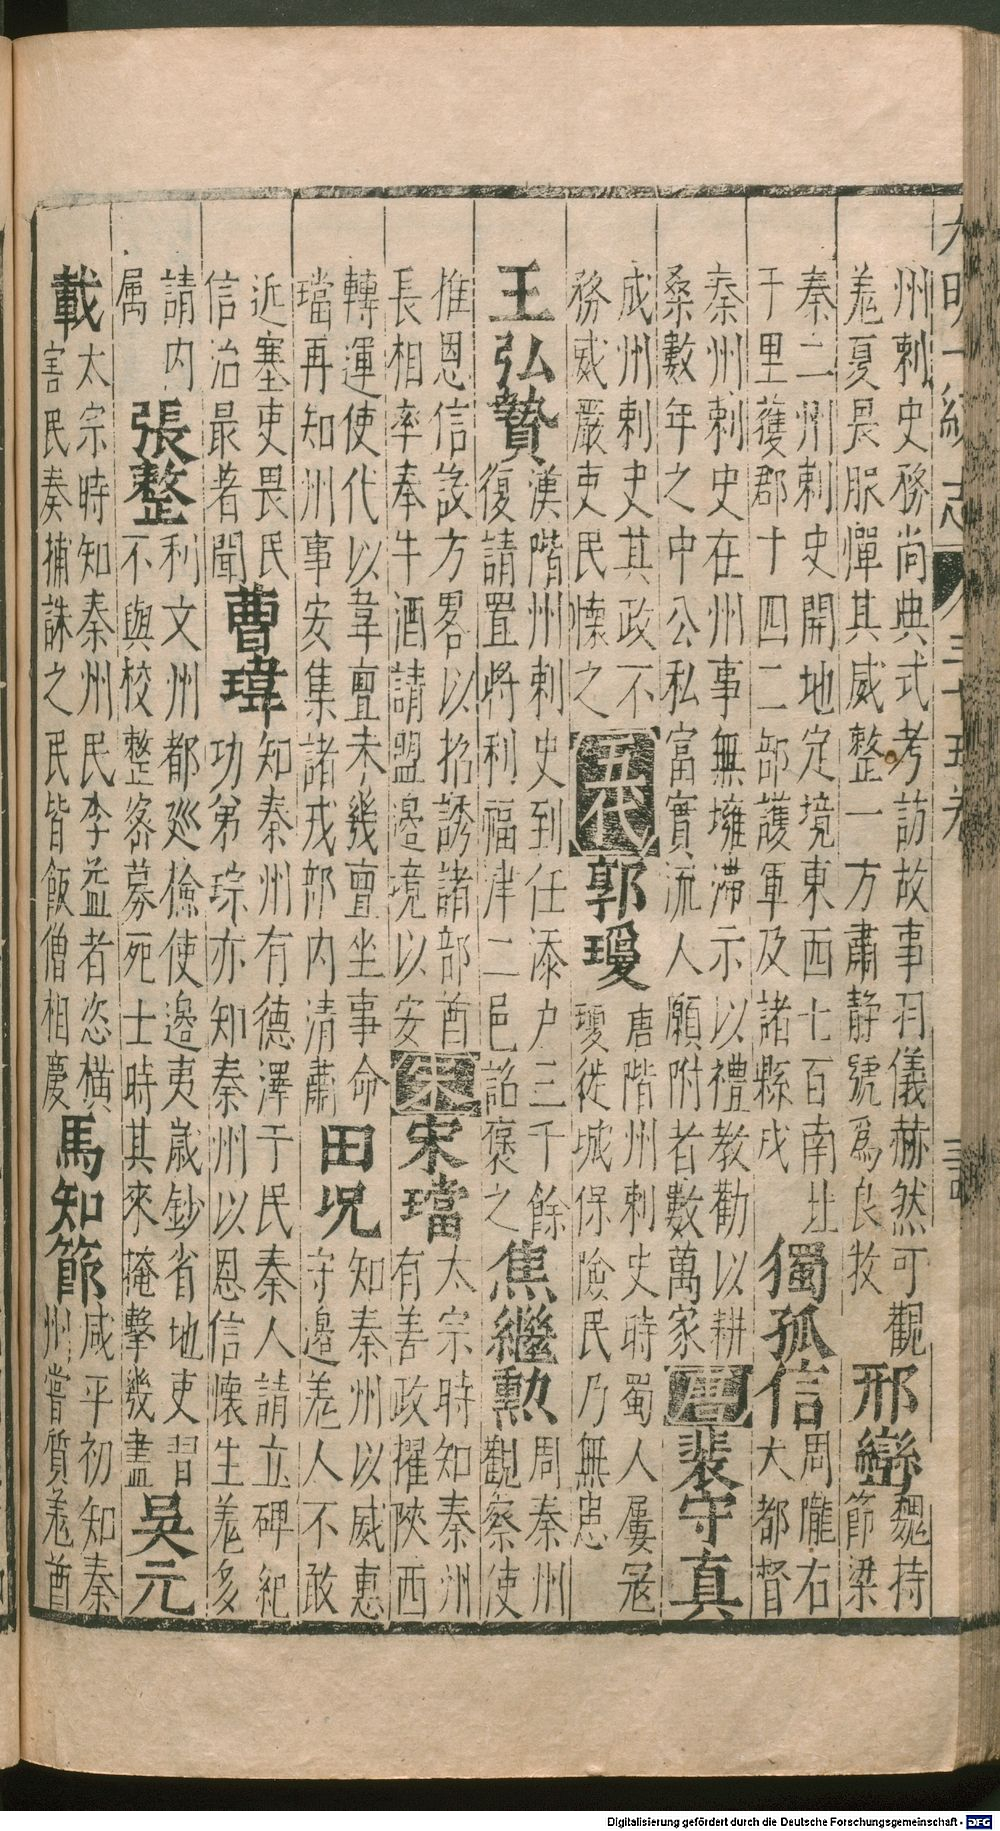 大明一統志
州刺史務尚典式考訪故事羽儀赫然可觀
羗夏畏服憚其威整一方肅静號爲良牧
邢巒
魏持
節梁
秦二州刺史開地定境東西七百南北
千里獲郡十四二部護軍及諸縣戍
獨孤信
周隴右
大都督
秦州刺史在州事無壅滯示以禮教勸以耕
桑數年之中公私富實流人願附者數萬家
唐
裴守真
成州刺史其政不
務威嚴吏民懷之
五代
郭瓊
唐階州刺史時蜀人屢冦
瓊徙城保險民乃無患
王弘贄
漢階州刺史到任添户三千餘
復請置將利福津二邑詔褒之
焦繼勳
周秦州
觀察使
推恩信設方畧以招誘諸部酋
長相率奉牛酒請盟邊境以安
宋
宋璫
太宗時知秦州
有善政擢陝西
轉運使代以韋亶未幾亶坐事命
璫再知州事安集諸戎部内清肅
田況
知秦州以威惠
守邊羗人不敢
近塞吏畏民
信治最者聞
曹瑋
知秦州有德澤于民秦人請立碑紀
功弟琮亦知秦州以恩信懷生羗多
請内
属
張整
利文州都廵檢使邊夷歲鈔省地吏習
不與校整宻募死士時其來掩擊幾盡
吳元
載
太宗時知秦州民李益者恣横
害民奏捕誅之民皆飯僧相慶
馬知節
咸平初知秦
州嘗質羗酋
Digitalisierung gefördert durch die Deutsche Forschungsgemeinschaft - DFG